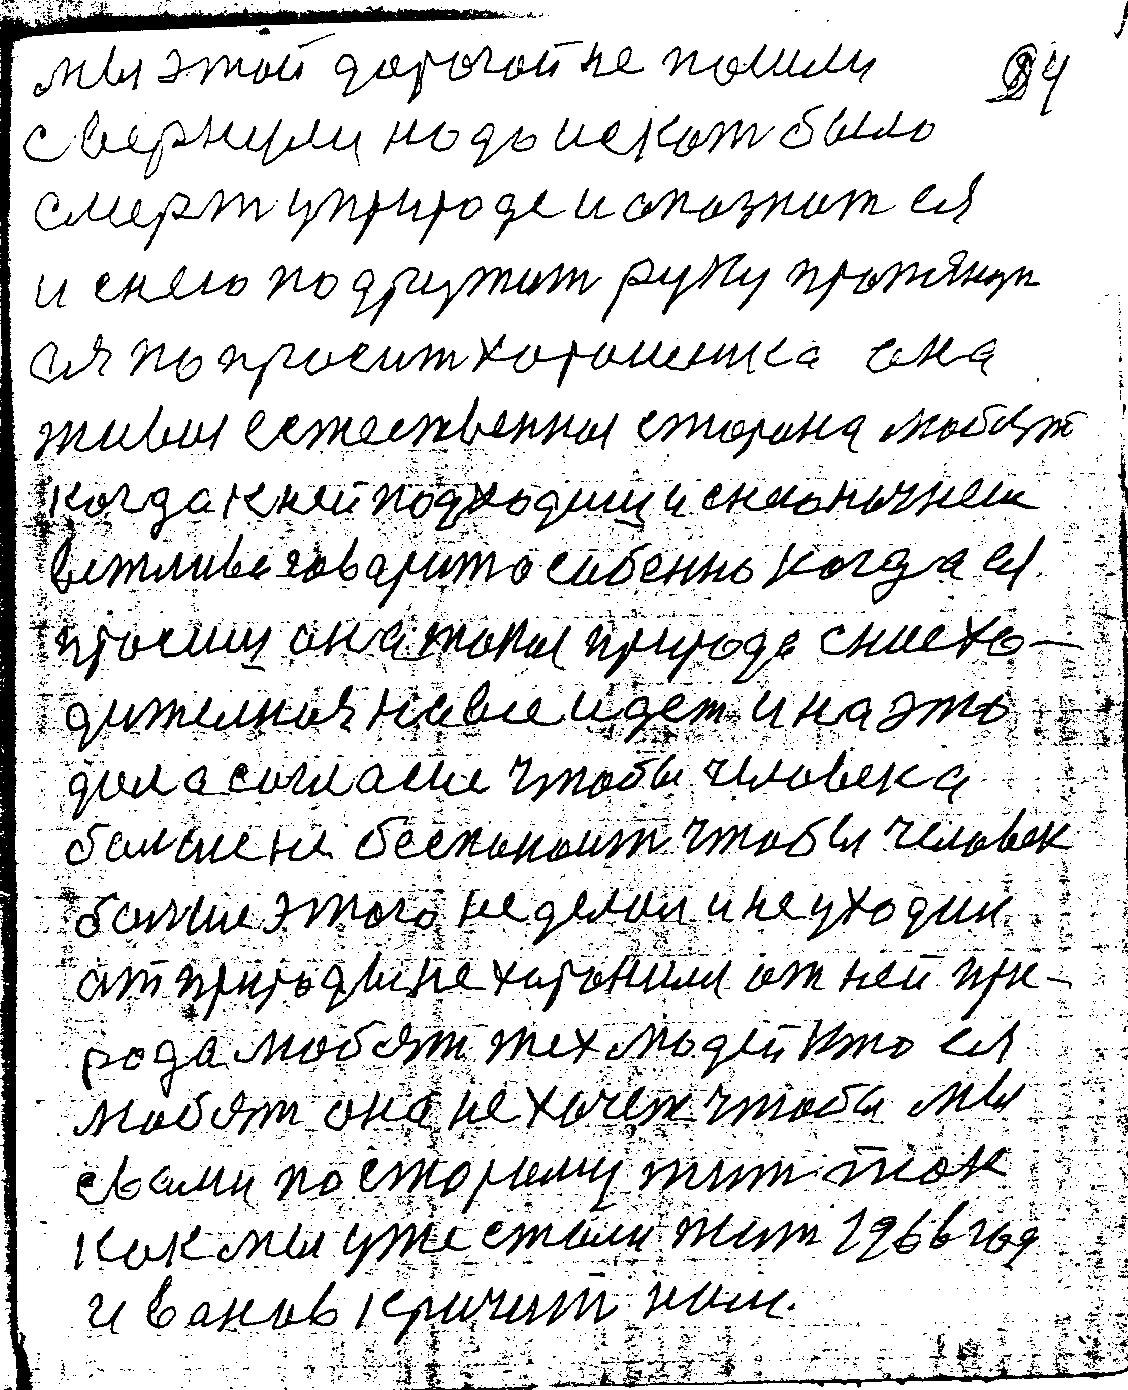 мы этой дорогой не пошли 84
свернули надо искат было
смерт у природе и опознат ея
и с нею подружит руку протянут
ея попросит хорошенка она
живая естественная сторона любят
когда к ней подходиш и с нею начнеш
вежливо говарит особенно когда ея
просиш она такая природа снисхо-
дителная на все идет и на это
дала согласие чтобы человека
болше не беспокоит чтобы человек
болше этого не делал и не уходил
от природы не хоронили от ней при-
рода любят тех людей кто ея
любят она не хочет чтобы мы
с вами по старому жит так
как мы уже стали жит 1966 год
иванов кричит нам.